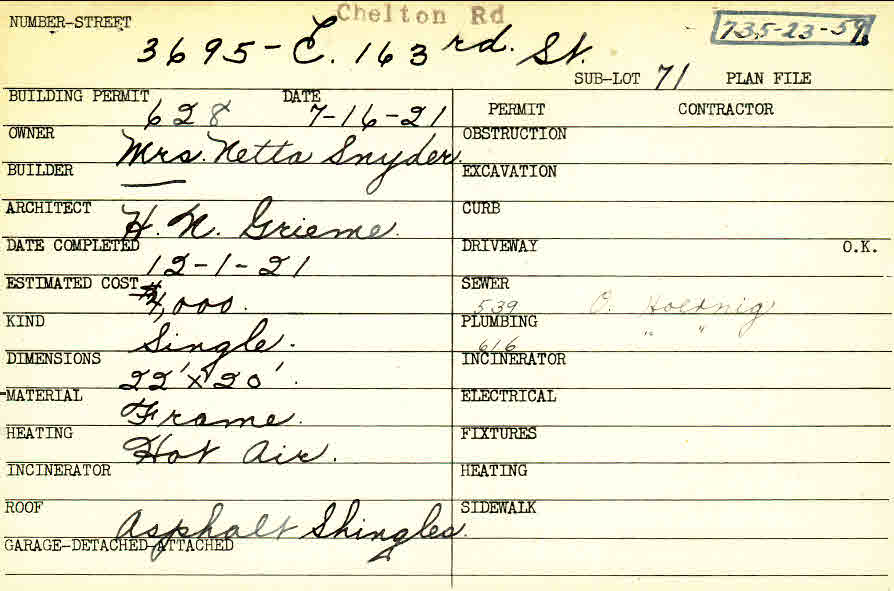 Chelton Rd
NUMBER-STREET 3695 - E. 163rd. St. 735-23-59
SUB-LOT 71 PLAN FILE
BUILDING PERMIT 628 DATE 7-16-21
PERMIT CONTRACTOR
OWNER Mrs. Netta Snyder.
OBSTRUCTION
BUILDER —
EXCAVATION
ARCHITECT H. N. Grieme.
CURB
DATE COMPLETED 12-1-21
DRIVEWAY O.K.
ESTIMATED COST $4,000.
SEWER 539 O. Hoernig
KIND Single.
PLUMBING 616 " "
DIMENSIONS 22' x 20'.
INCINERATOR
MATERIAL Frame.
ELECTRICAL
HEATING Hot Air.
FIXTURES
INCINERATOR
HEATING
ROOF Asphalt Shingles.
SIDEWALK
GARAGE-DETACHED-ATTACHED